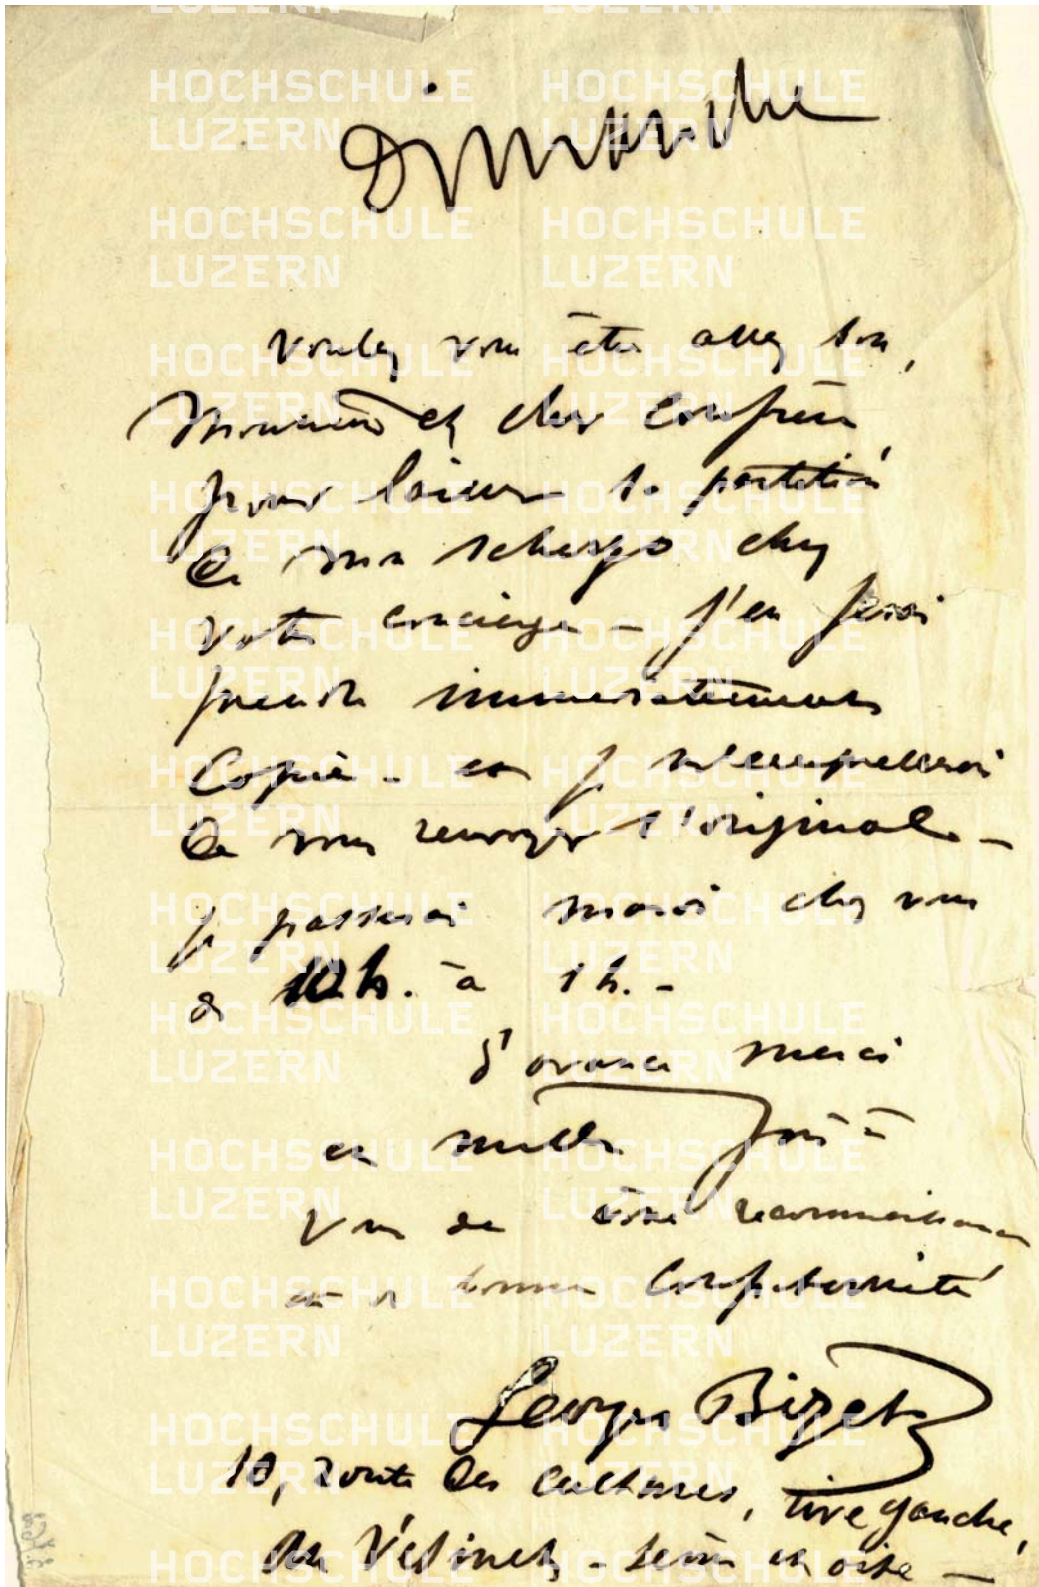 Dimanche
Voulez vous être assez bon,
Monsieur et cher confrère,
pour laisser la partition
de mon scherzo chez
votre concierge – j'en ferai
prendre immédiatement
copie – et je m'empresserai
de vous renvoyer l'original –
je passerai mardi chez vous
de 10 h. à 1 h. –
d'avance merci
et mille fois à
vous de vive reconnaissance
et de bonne confraternité
Georges Bizet
10, route des cultures, rive gauche,
au Vésinet – Seine et oise –